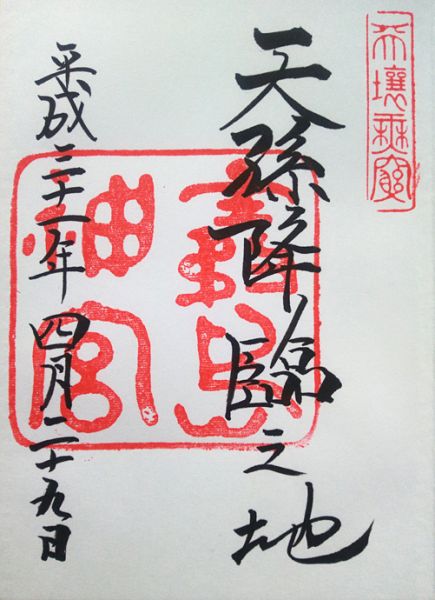 天壤無窮
天孫降臨之地
霧島
神宮
平成三十一年四月二十九日